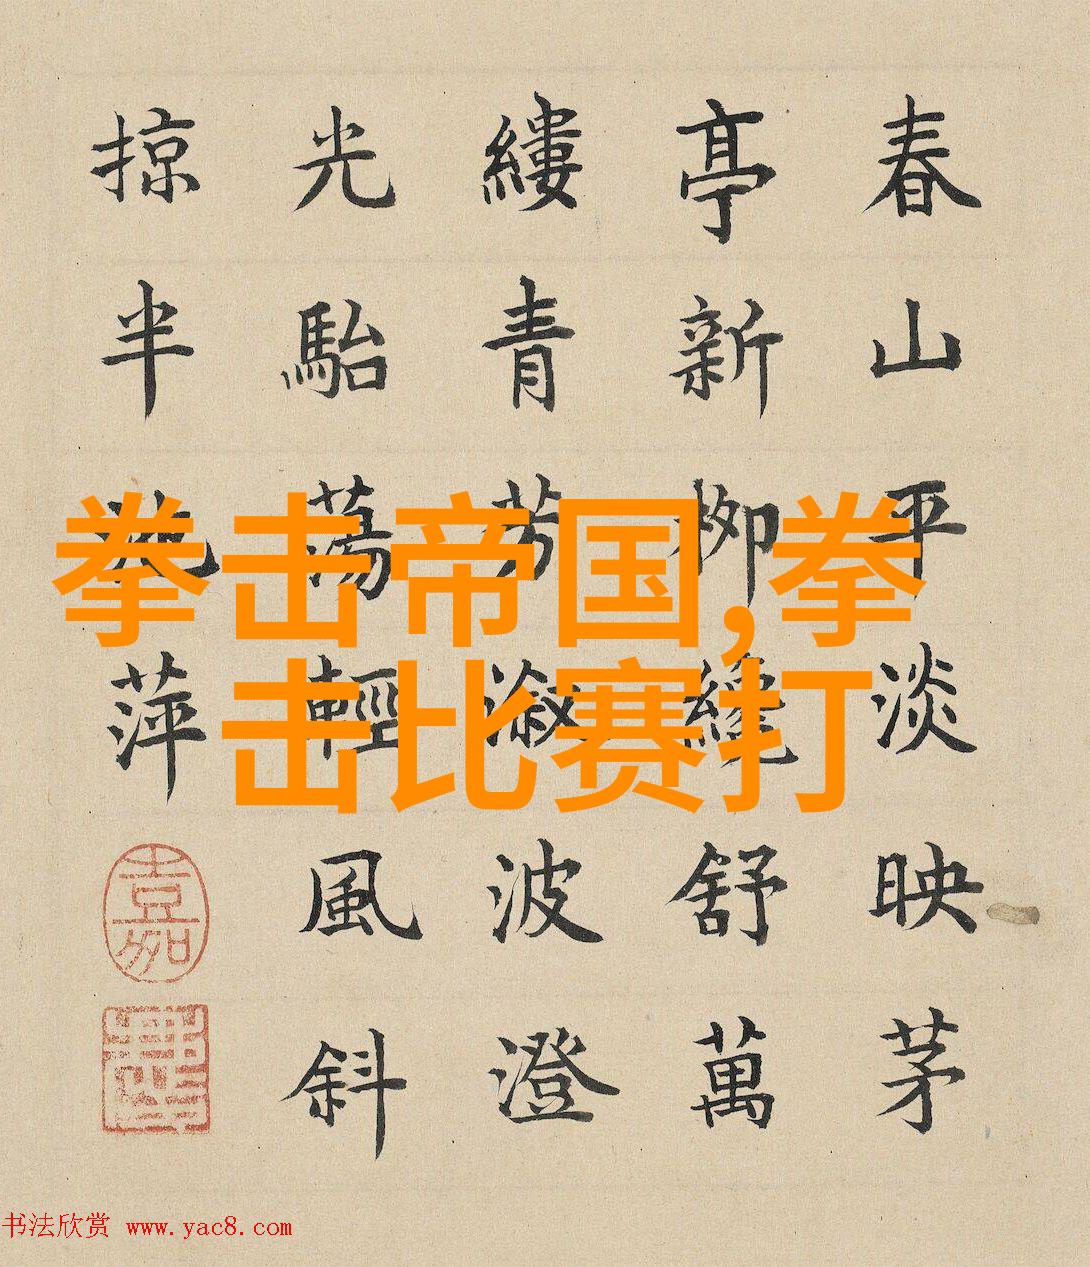 春山平淡映茅
亭新栁纔舒萬
縷青芳漵波澄
光駘蕩輕風斜
掠半萍
嘉
拳击帝国,拳
击比赛打
书法欣赏 www.yac8.com